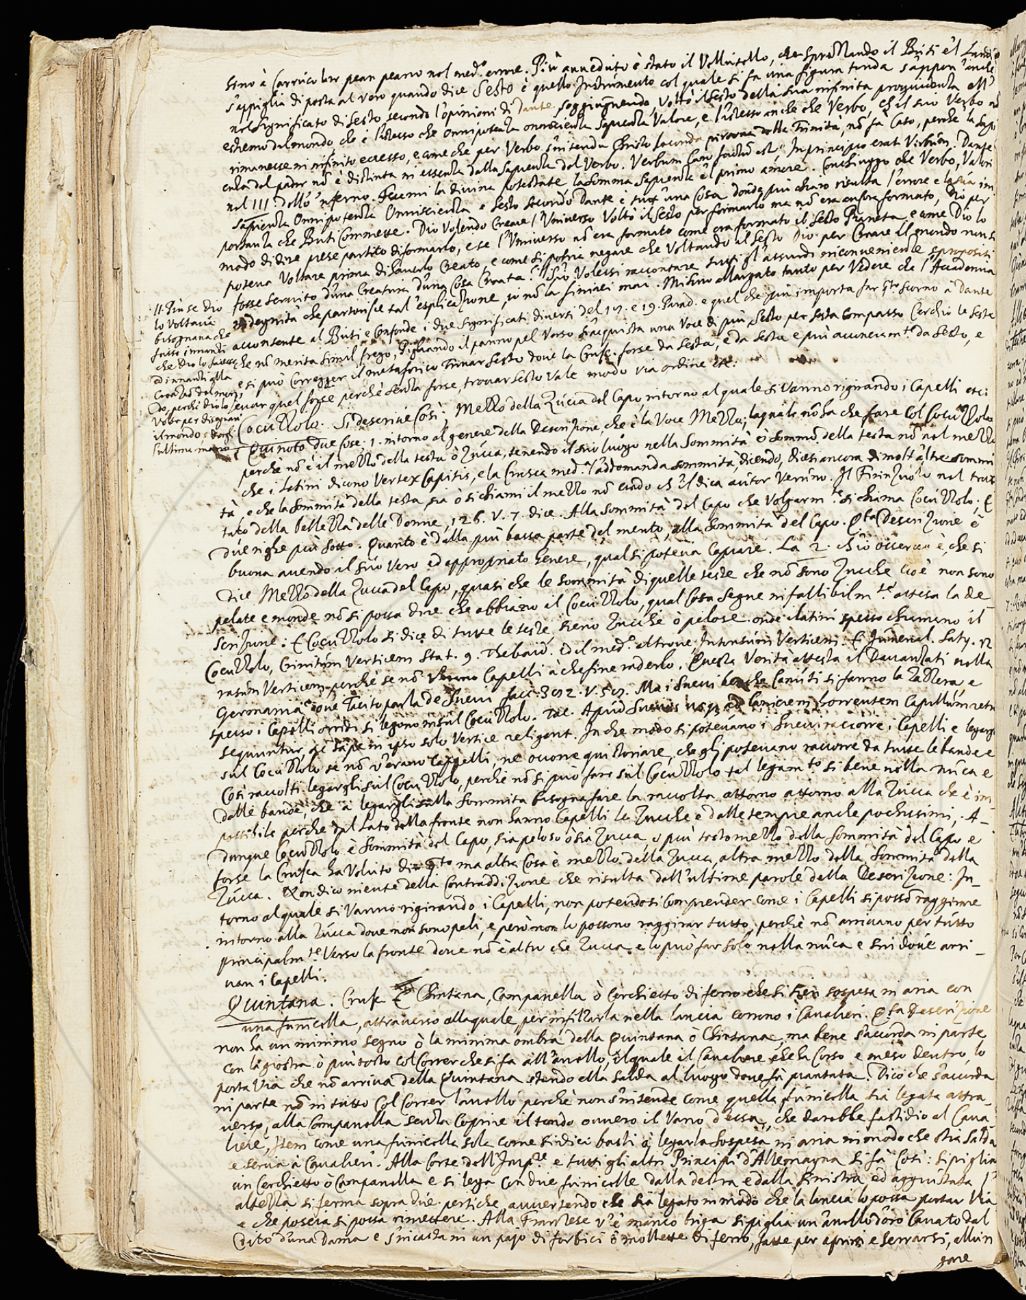 sino à Carrico ben pean peano nel med.º errore. Più aveduto è stato il Vellutello, che sprezzando il Buti e'l Landino
s'appiglia di posta al vero quando dice Sesto è quello Instrumento col quale si fa una figura tonda s'appon anche
nel significato di Sesto, secondo l'opinioni di Dante, soggiugnendo, Voltò il sesto della sua infinita providenza all'
estremo del mondo, che è l'istesso che omnipotenza omniscienza sapienza Valore, e l'istesso anche che Verbo. ch'il suo Verbo non
rimanesse in infinito eccesso, e come che per Verbo s'intenda Christo secondo persona della Trinità, nõ fà caso, perche la Sapi
enza del padre nõ è distinta in essenza dalla Sapienza del Verbo. Verbum Caro factum est. In principio erat Verbum. Dante
nel III dell'Inferno. Fecemi la divina potestate la somma Sapienza e'l primo amore. Conchiuggo che Verbo, Valor
Sapienza Omnipotenza Omniscienza e Sesto secondo Dante è tutt'una Cosa
portanza che Buti Commesse. Dio Volendo Creare l'Universo Voltò il sesto per formarlo ma nõ era ancora formato, Dio per
modo di dire prese partito di formarlo, e se l'Universo nõ era formato come era formato il sesto Pianeta, e come Dio lo
poteva Voltare prima d'haverlo Creato, e come si potrà negare che Voltando il sesto Dio per Creare il mondo non si
fosse servito d'una Creatura d'una Cosa Creata. S'io Volessi raccontare tutti gl'assurdi inconvenienze e spropositi
ed egnità che partorisce tal'esplicazione io nõ la finirei mai. Mi sono allargato tanto per Vedere che l'Accademia
acconsente al Buti e confonde i due significati diversi del 17. e 19. Parad. e quel che più importa far q.to scorno à Dante
che nõ merita simil fregio, Tignando il panno pel Verso s'acquista una Voce di più, Sesto per sesta Compasso Cerchio le seste
e si può Corregger il metaforico Trovar Sesto dove la Crusc. forse da sesta, è da Sesta, e più acconciam.te da Sesto, e
levar quel forse perche senza forse, trovar sesto Vale modo via ordine etc.
11. Più se Dio
lo Voltava
bisognava che
fusse innanzi
che Dio lo facesse
dinnanzi alla
Creazion del mon
do, perche Dio lo
Voltò per disegnare
il mondo e darli
l'ultima mano
Cocuzzolo. Si descrive Così, Mezzo della Zucca del Capo intorno al quale si Vanno rigirando i Capelli etc.
Quì noto due Cose. 1. intorno al genere della Descrizione che è la Voce Mezzo, la quale nõ ha che fare col Cocuzzolo
perche nõ è il mezzo della testa ò Zucca, tenendo il suo luogo nella sommità ò sommo della testa nõ nel mezzo
che i Latini dicono Vertex Capitis, e la Crusca med.ª l'addomanda sommità, dicendo, dicesi ancora di molt'altre sommi
tà, e che la sommità della testa sia ò si chiami il mezzo nõ credo ch'il dica autor Veruno. Il Firenzuola nel trat
tato della Bellezza delle Donne, 126. V. 7. dice. Alla sommità del Capo che Volgarm.te si chiama Cocuzzolo, E
due righe più sotto. Quanto è dalla più bassa parte del mento, alla sommità del Capo. Q.ta Descrizione è
buona avendo il suo Vero ed appropriato genere, qual si poteva Copiare. La 2. ch'io osservo è, che si
dice Mezzo della Zucca del Capo, quasi che le sommità di quelle teste che nõ sono Zucche cioè non sono
pelate e monde nõ si possa dire che abbiano il Cocuzzolo, qual Cosa segue infallibilm.te attesa la De-
scrizione: E Cocuzzolo si dice di tutte le teste, sieno Zucche ò pelose. onde i latini spesso chiamino il
Cocuzzolo, Crinitum Verticem Stat. 9. Thebaid. Ed il med.º altrove Intonsum Verticem. E Juvenal. Saty. 12
rasum Verticem, perche se nõ Vavevano Capelli à che fine raderlo. Questa Verità attesta il Davanzati nella
Germania, ove Tacito parla de Suevi facc. 392. V. 59. Ma i Suevi benche Canuti si fanno la Zazzera e
spesso i Capelli orridi si legono in sul Cocuzzolo. Tac. Apud Suevos usque ad Canitiem horrentem Capillum retro
sequuntur ac sæpe in ipso solo Vertice religant. In che modo si potevano i Suevi raccorre i Capelli e legargli
sul Cocuzzolo se nõ v'erano Cappelli, ne occorre quistionare, che gli potevano raccorre da tutte le bande e
Così raccolti legargli sul Cocuzzolo, perche nõ si può fare sul Cocuzzolo tal legam.to si bene nella nuca e
dalle bande, che à legargli sulla sommità bisogna fare la raccolta attorno attorno alla Zucca che è im
possibile perche dal lato della fronte non hanno Capelli le Zucche e dalle tempie anche pochissimi, A-
dunque Cocuzzolo è sommità del Capo, sia peloso ò sia Zucca, ò più tosto mezzo della sommità del Capo e
forse la Crusca ha Voluto dir q.to ma altra Cosa è mezzo della Zucca, altra mezzo della Sommità della
Zucca. Non dico niente della Contraddizione che risulta dall'ultime parole della Descrizione: In-
torno al quale si Vanno rigirando i Capelli, non potendosi Comprender come i Capelli si possõ raggirare
intorno alla Zucca dove non sono peli, e però non lo possono raggirar tutto, perche nõ arrivano per tutto
principalm.te Verso la fronte dove nõ è altro che Zucca, e lo può far solo nella nuca e sin dove arri-
van i Capelli.
Quintana. Crusc. E Chintana, Campanella ò Cerchietto di ferro che si tien sospesa in aria con
una funicella, attraverso alla quale per infilzarla nella lancia corrono i Cavalieri. Q.ta Descrizione
non ha un minimo segno ò la minima ombra della Quintana ò Chintana, ma bene s'accorda in parte
con la giostra ò più tosto col Correr che si fa all'anello, il quale il Cavaliere che ha Corso e messo dentro, lo
porta Via che nõ arriva della Quintana stando ella salda al luogo dove fu piantata. Dico che s'accorda
in parte nõ in tutto Col Correr l'anello perche non s'intende come quella funicella sia legata attra-
verso, alla Campanella senza Coprire il tondo ovvero il Vano d'essa, che darebbe fastidio al Cava
liere, Item come una funicella sola come s'indici basti à legarla Sospesa in aria in modo che stia salda
e serva à Cavalieri. Alla Corte dell'Imp.re e tutti gli altri Principi d'Allemagna si fà Così: si piglia
un Cerchietto ò Campanella e si lega con due funicelle dalla destra e dalla sinistra, ed aggiustata l'
altezza si ferma sopra due pertiche, avvertendo che sia legato in modo che la lancia lo possa portar Via
e che poscia si possa rimettere. Alla Franzese v'è manco briga si piglia un anello d'oro Cavato dal
Dito d'una Dama e s'incastra in un pajo di forbici ò mollette di ferro, fatte per aprirsi e serrarsi, allun
gare